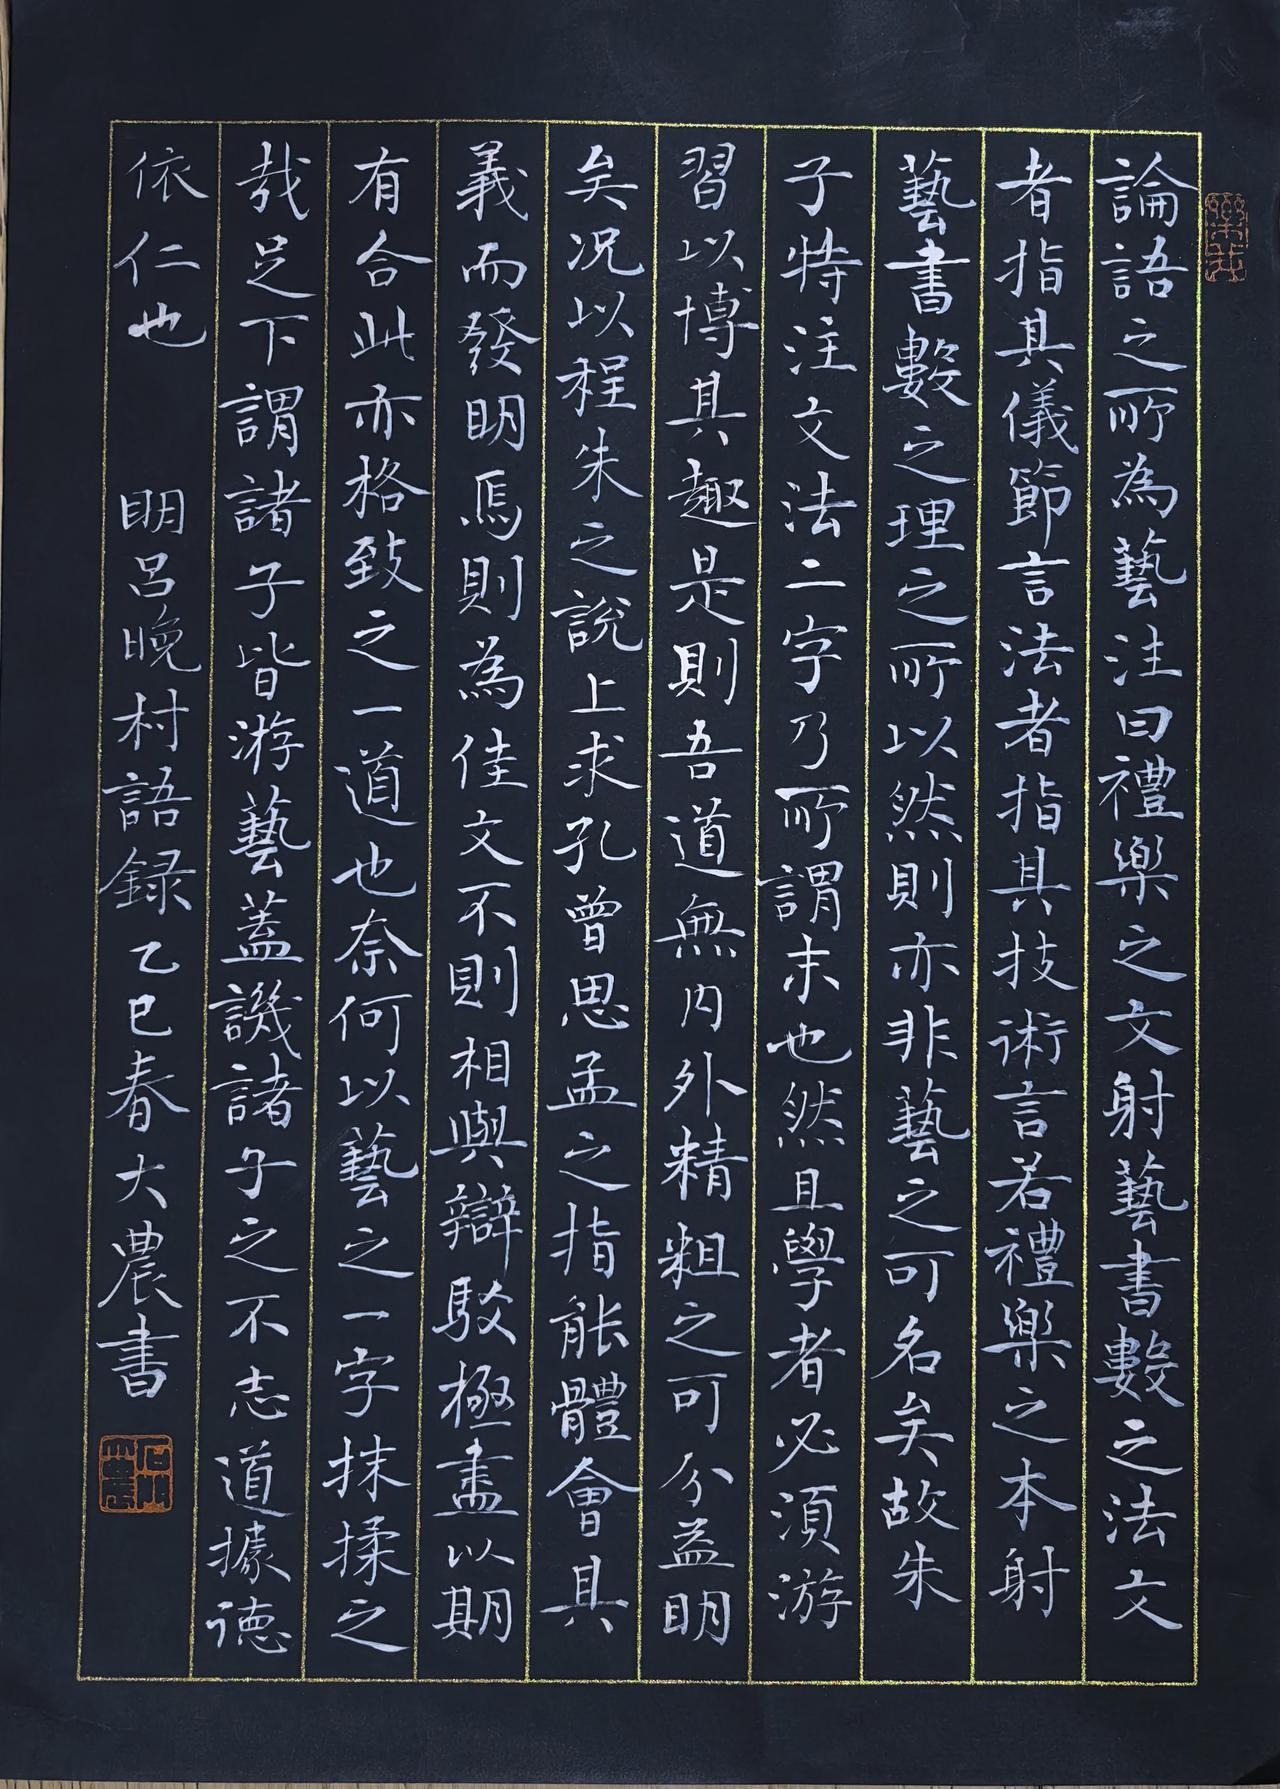 論語之所為藝注曰禮樂之文射藝書數之法文
者指其儀節言法者指其技術言若禮樂之本射
藝書數之理之所以然則亦非藝之可名矣故朱
子特注文法二字乃所謂末也然且學者必須游
習以博其趣是則吾道無內外精粗之可分益明
矣况以程朱之說上求孔曾思孟之指能體會其
義而發明焉則為佳文不則相與辯駁極盡以期
有合此亦格致之一道也奈何以藝之一字抹揉之
哉足下謂諸子皆游藝蓋譏諸子之不志道據德
依仁也 明呂晚村語録乙巳春大農書